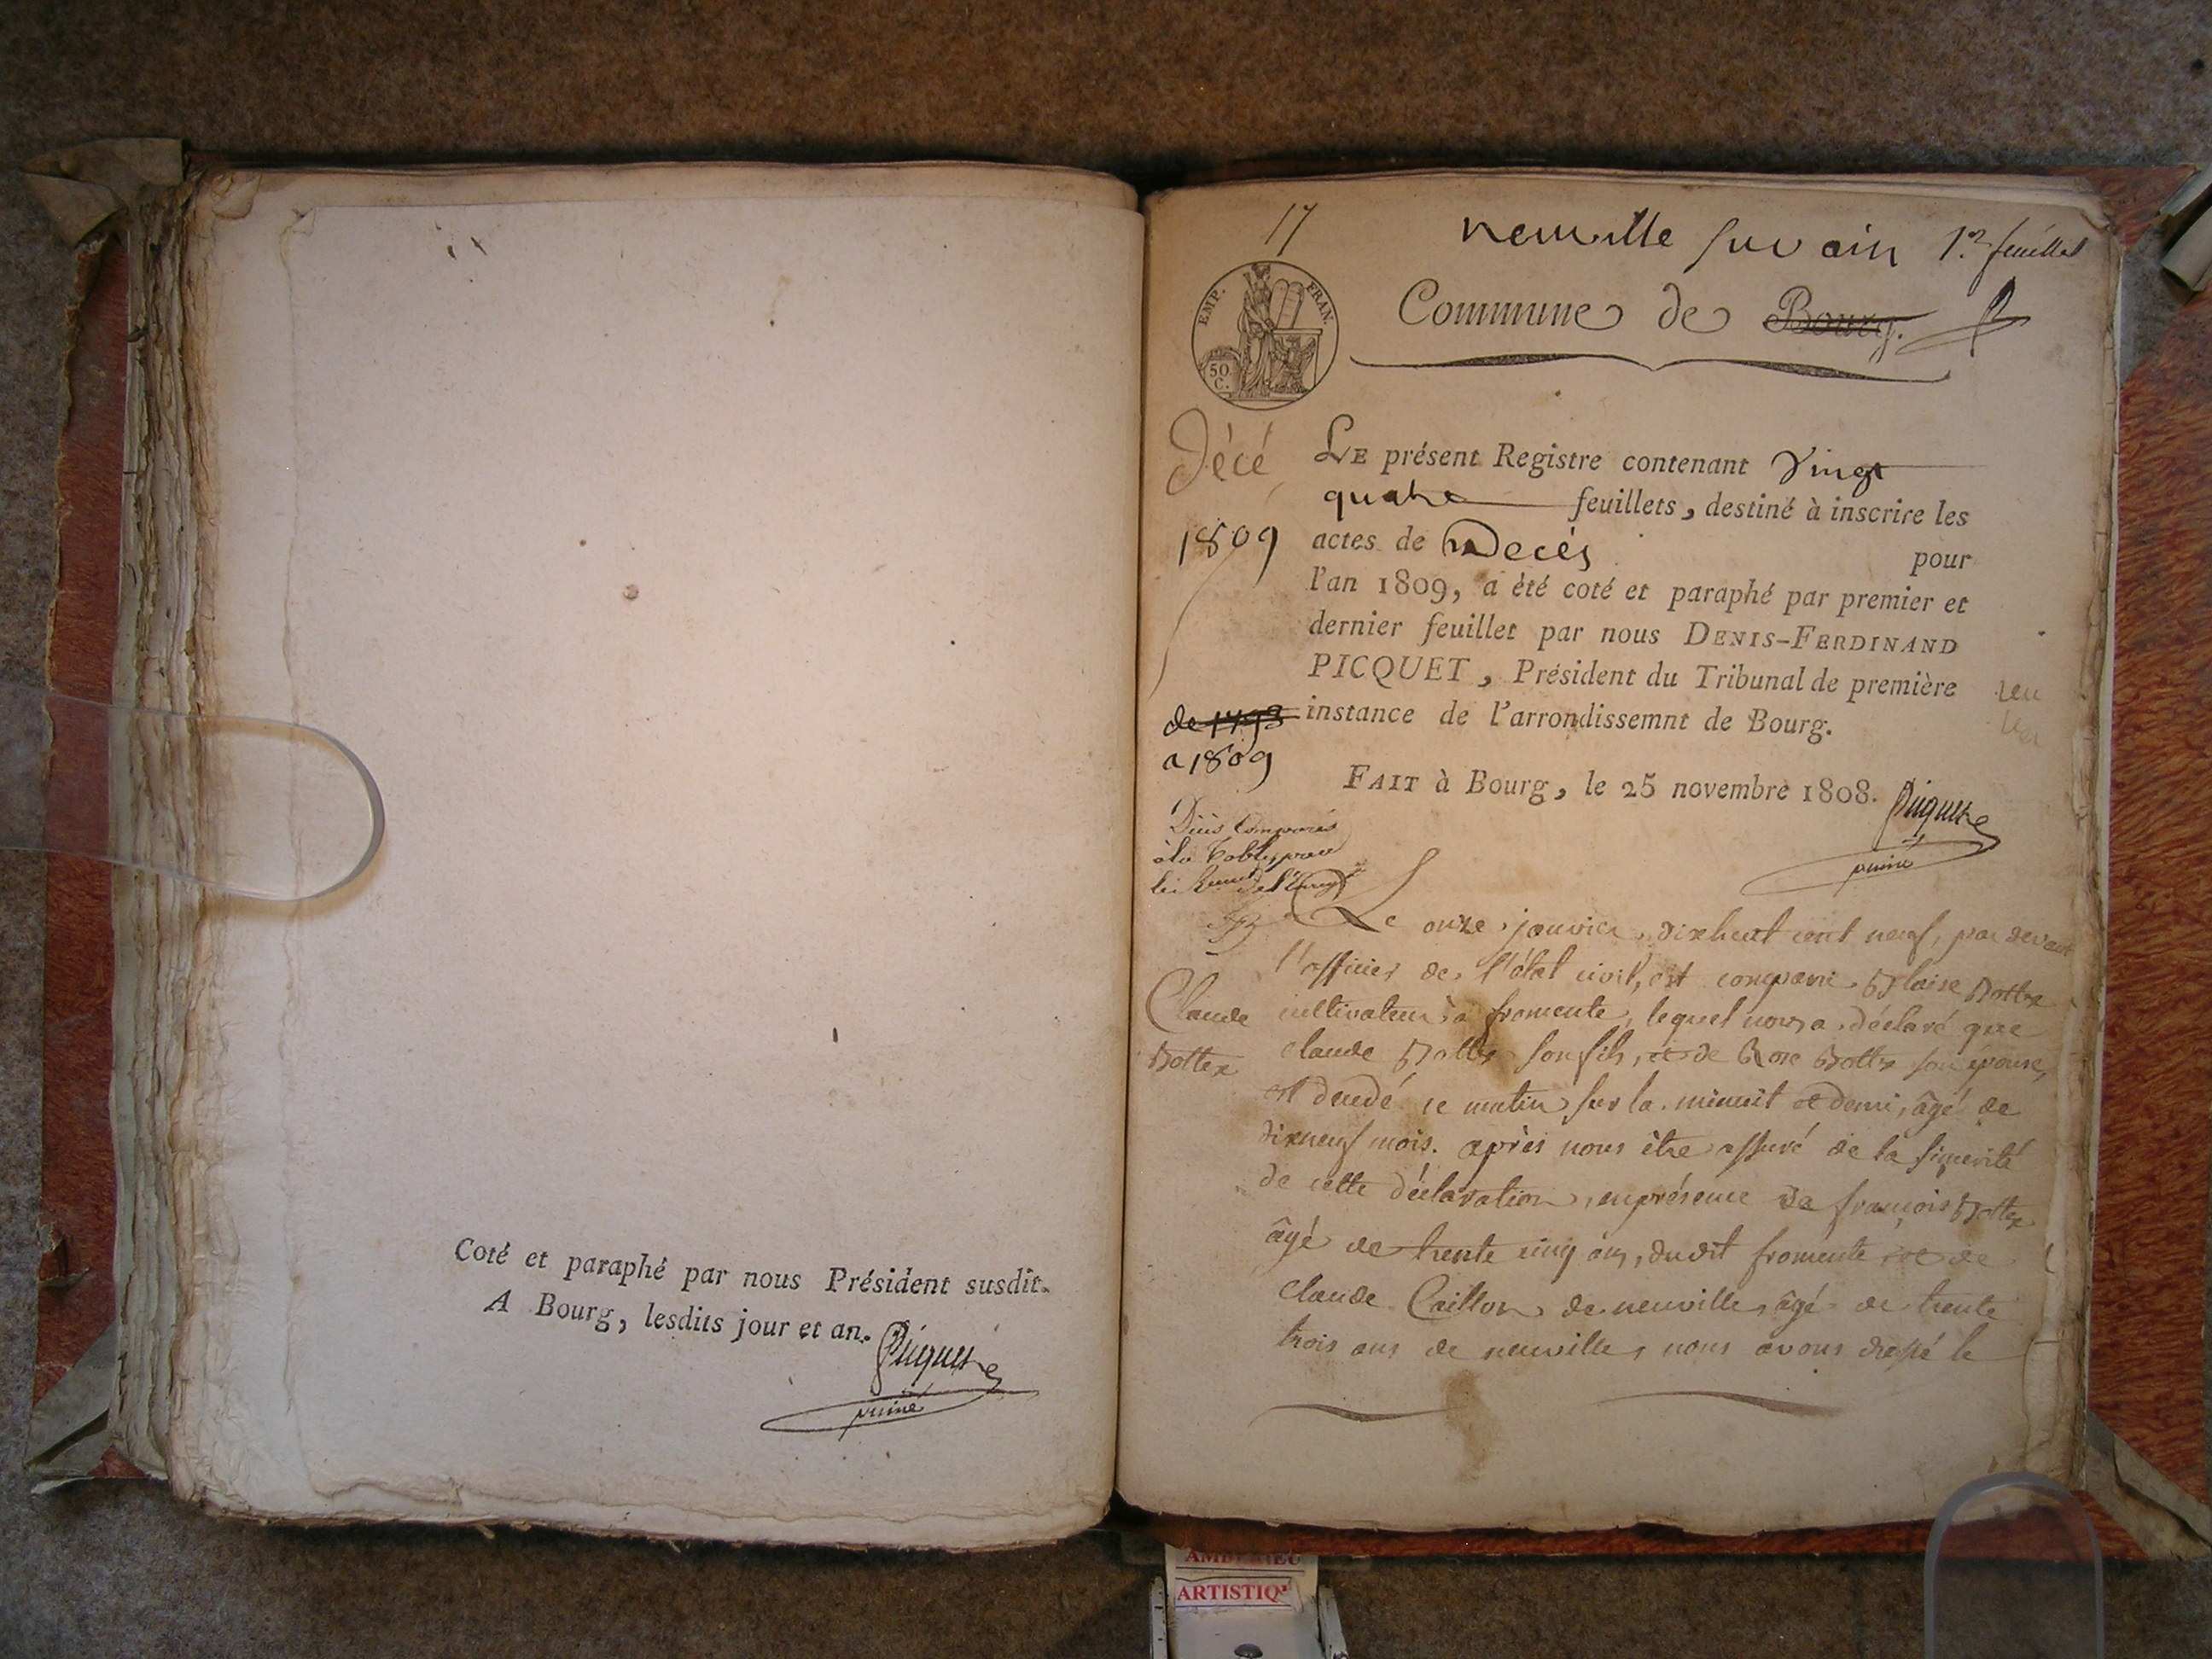 Coté et paraphé par nous Président susdit.
A Bourg, lesdits jour et an.
puiné
17
neuville sur ain 1.er feuillet
EMP. FRAN.
50 C.
Commune de Bourg.
Décé
1809
de 1793
a 1809
LE présent Registre contenant Vingt
quatre feuillets, destiné à inscrire les
actes de Decés pour
l'an 1809, a èté coté et paraphé par premier et
dernier feuillet par nous DENIS-FERDINAND
PICQUET, Président du Tribunal de première
instance de l'arrondissemnt de Bourg.
FAIT à Bourg, le 25 novembre 1808.
puiné
à la Table
Claude
Bottex
Le onze janvier dixhuit cent neuf, par devant
l'officier de l'état civil, est comparu Blaise Bottex
cultivateur à fromente, lequel nous a déclaré que
claude Bottex son fils, et de Rose Bottex son épouse,
est decedé ce matin sur la minuit et demi, âgé de
dixneuf mois. après nous être assuré de la sincerité
de cette déclaration, en présence de françois Bottex
âgé de trente cinq ans, dudit fromente et de
claude Caillon de neuville, âgé de trente
trois ans de neuville, nous avons dressé le
AMBERIEU
ARTISTIQU